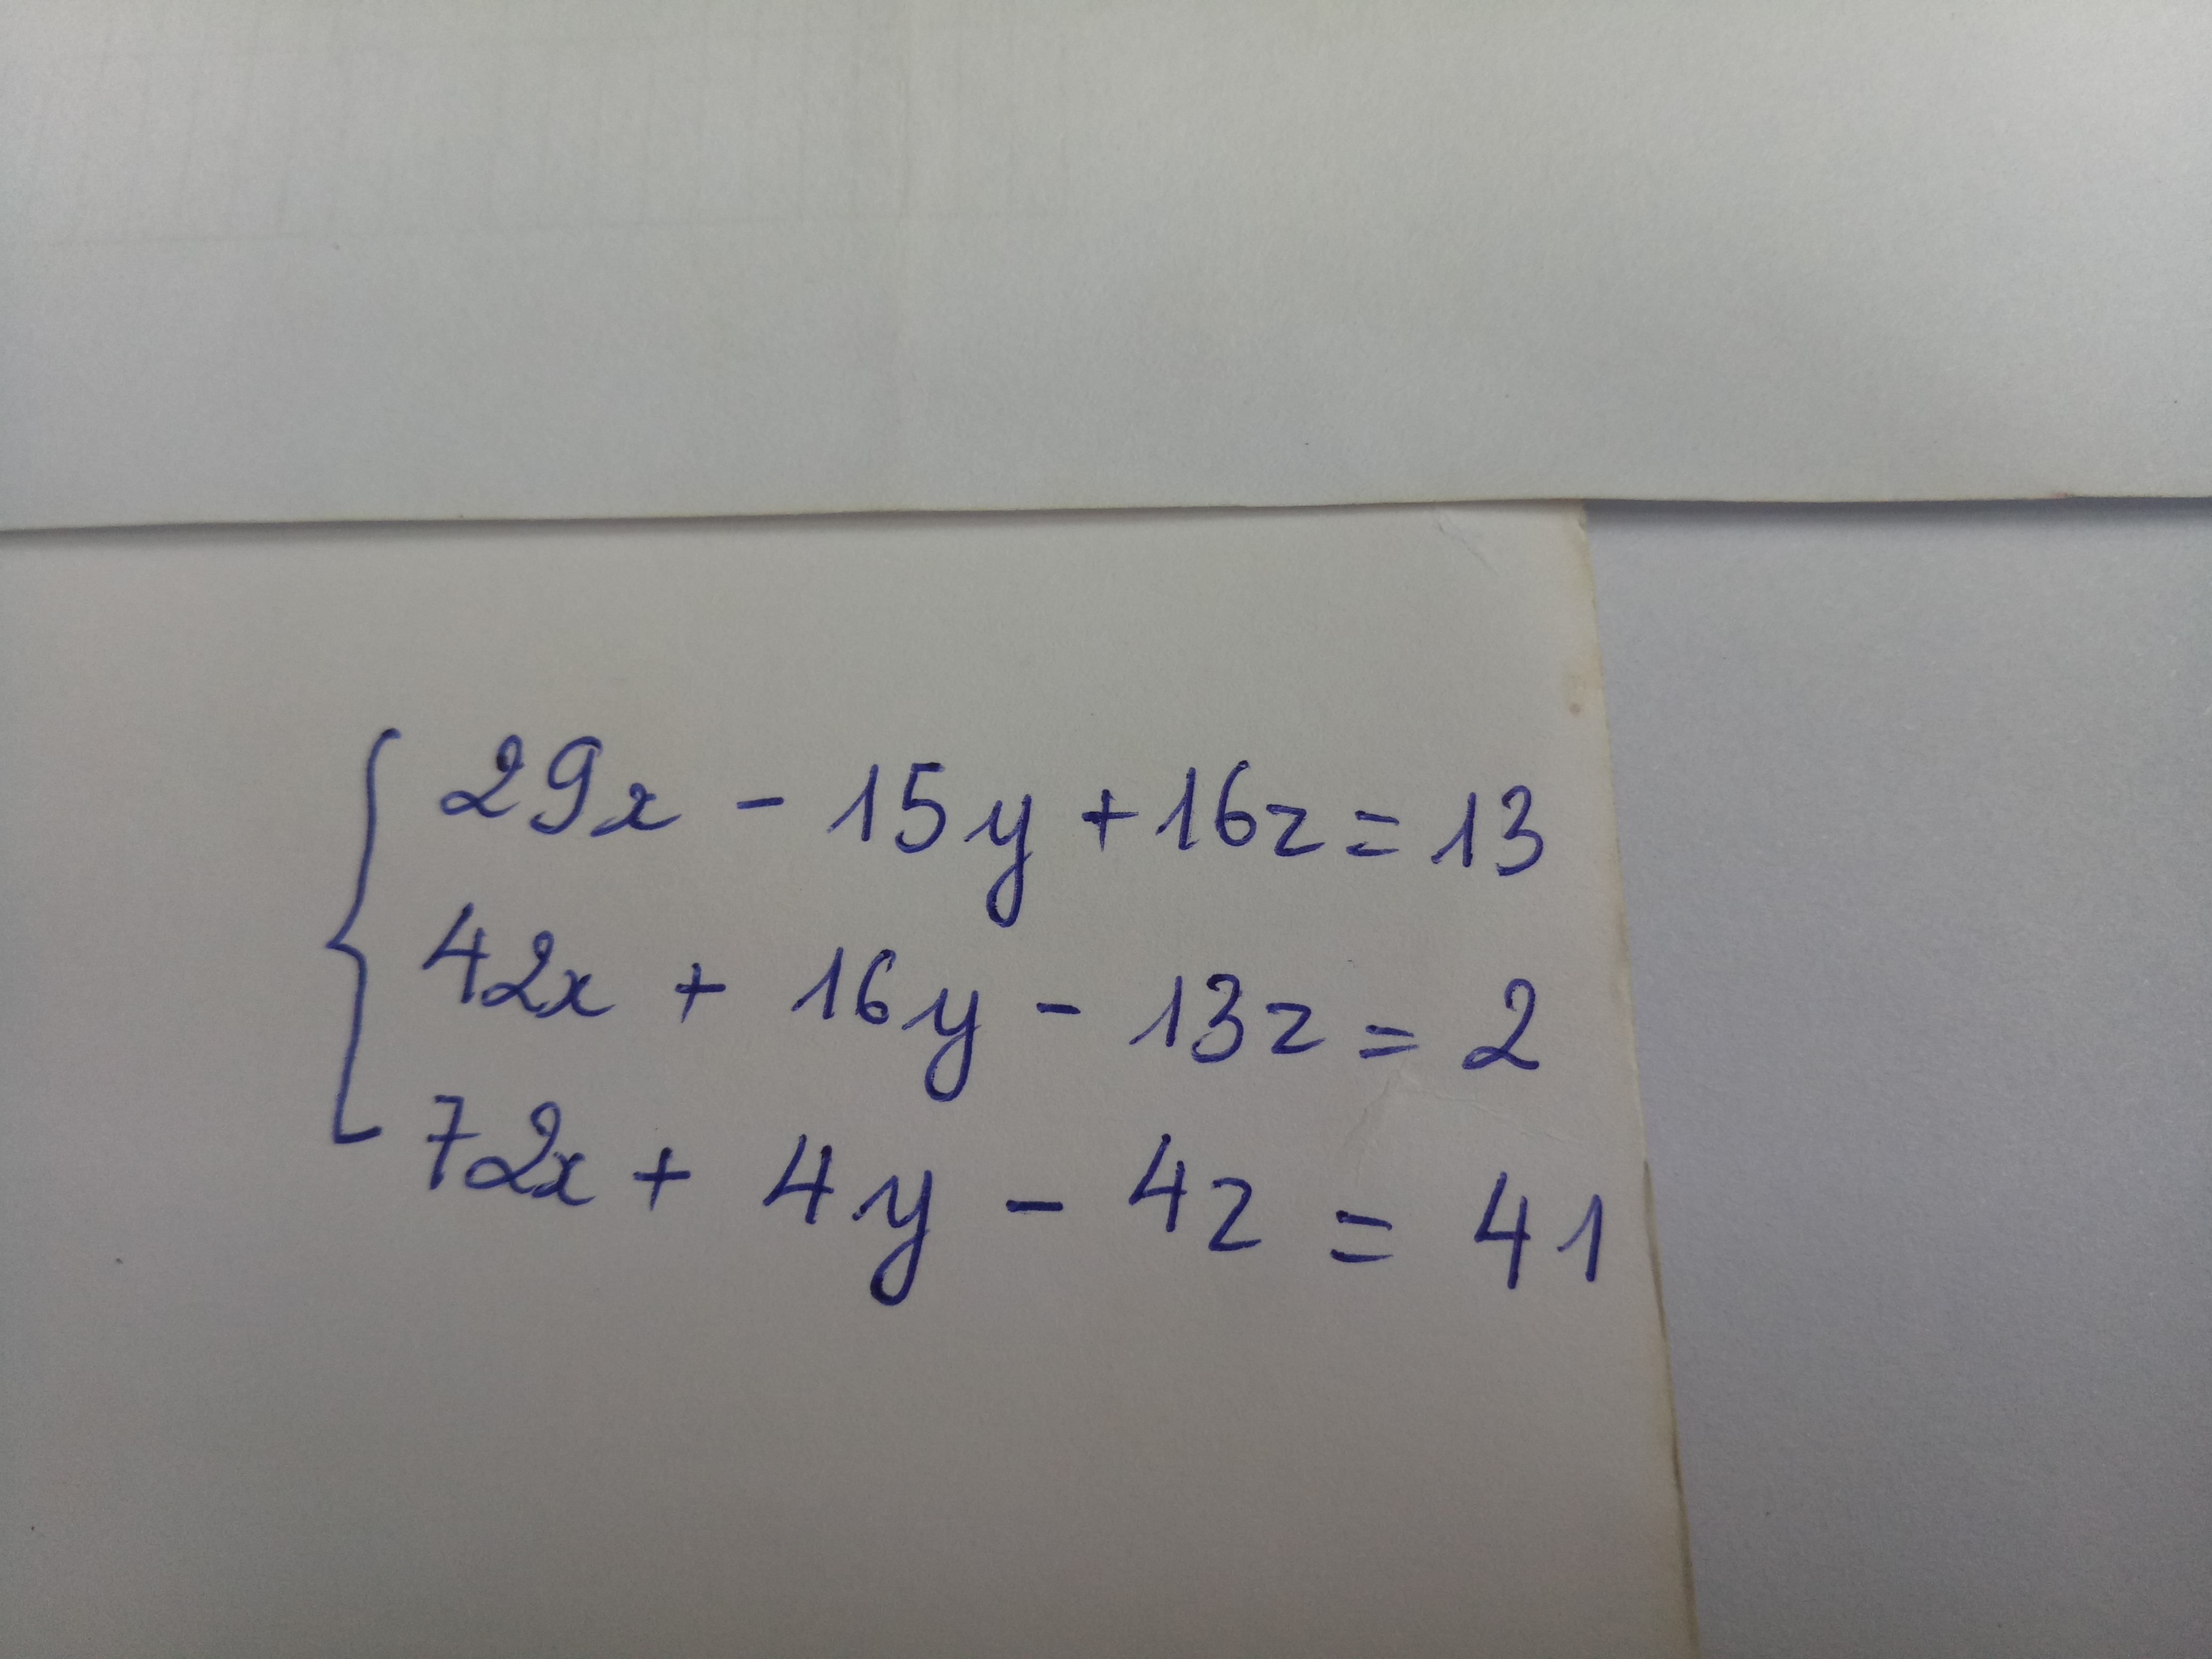 29x - 15y + 16z = 13
42x + 16y - 13z = 2
72x + 4y - 4z = 41